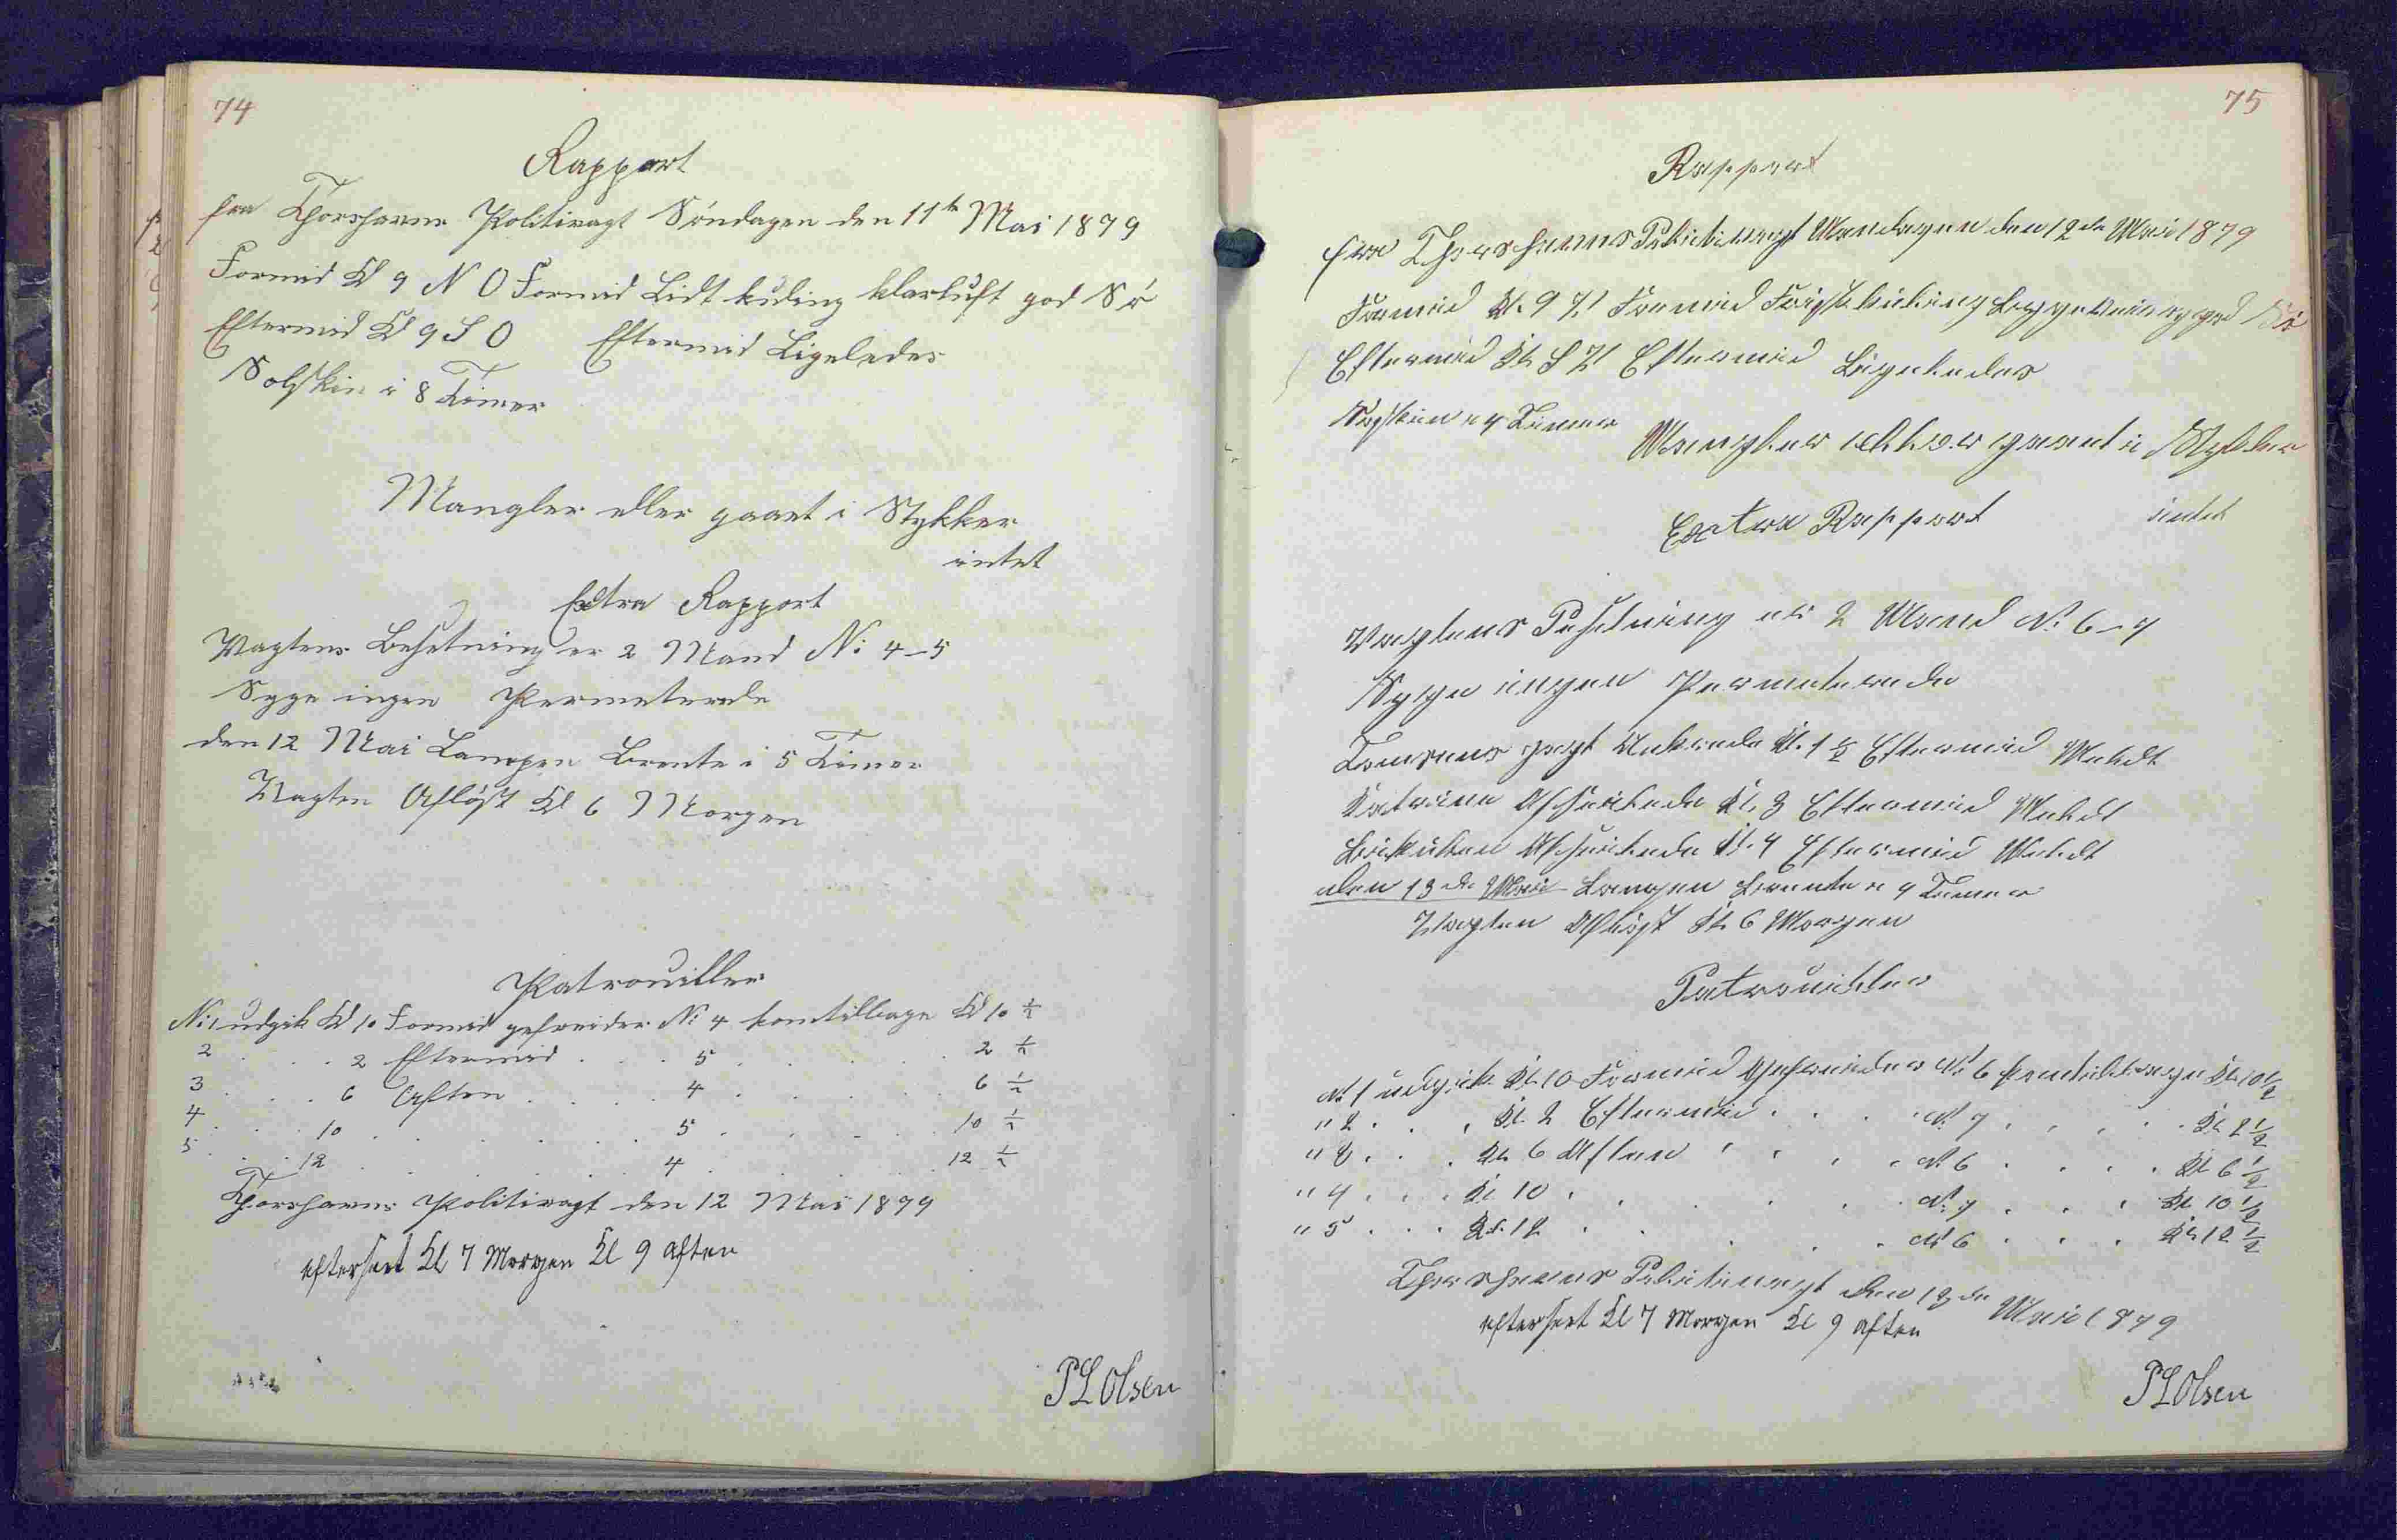 74
Rapport
fra Thorshavns Politivagt Söndagen den 11te Mai 1879
Formid Kl 9 N O Formid Lidt kuling klarluft god Sö
Eftermid Kl 9 S O Eftermid Ligeledes
Solskin i 8 Timer
Mangler eller gaaet i Stykker
intet
Extra Rapport
Vagtens Besetning er 2 Mand No 4-5
Syge ingen Permeterede
den 12 Mai Lampen Brente i 5 Timer
Vagten Aflöst Kl 6 Morgen
Patrouiller
No 1 udgik Kl 10 Formid gefreider No 4 komtilbage Kl 10 ½
2 . . . 2 Eftermid . . . 5 . . . 2 ½
3 . . . 6 Aften . . . 4 . . . 6 ½
4 . . . 10 . . . 5 . . . 10 ½
5 . . . 12 . . . 4 . . . 12 ½
Thorshavns Politivagt den 12 Mai 1879
efterseet Kl 7 Morgen Kl 9 Aften
P L Olsen
75
Rapport
fra Thorshavns Politivagt Mandagen den 12te Mai 1879
Formid Kl. 9 V Formid Frisk kuling god Sö
Eftermid Kl S V Eftermid Ligeledes
Solskin i 4 Timer
Mangler eller gaaet i Stykker
intet
Extra Rapport
Vagtens Besetning er 2 Mand No 6-7
Syge ingen Permeterede
jagt Ankrede Kl. 1 ½ Eftermid Meldt
Katrine Afseilede Kl. 3 Eftermid Meldt
Afseilede Kl. 4 Eftermid Meldt
den 13de Mai Lampen Brente i 4 Timer
Vagten Aflöst Kl 6 Morgen
Patrouiller
No 1 udgik Kl. 10 Formid Gefreider No 6 komtilbage Kl. 10 ½
" 2 . . . Kl. 2 Eftermid . . . No 7 . . . Kl 2 ½
" 3 . . . Kl. 6 Aften . . . No 6 . . . Kl 6 ½
" 4 . . . Kl 10 . . . No 7 . . . Kl 10 ½
" 5 . . . Kl. 12 . . . No 6 . . . Kl 12 ½
Thorshavns Politivagt den 13de Mai 1879
efterseet Kl 7 Morgen Kl 9 Aften
P L Olsen